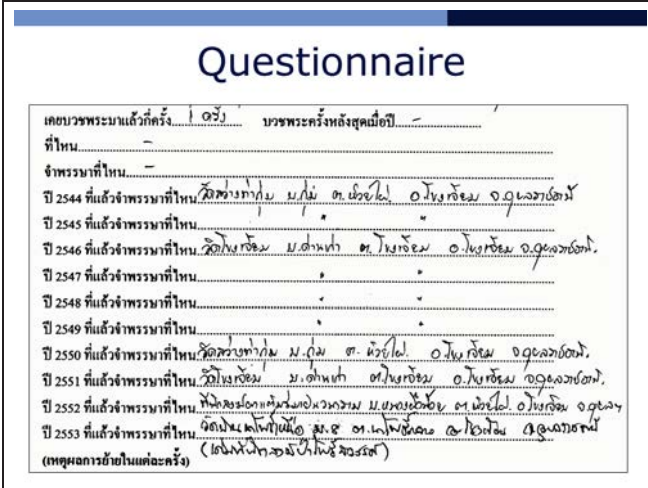 Questionnaire
เคยบวชพระมาแล้วกี่ครั้ง 1 ครั้ง บวชพระครั้งหลังสุดเมื่อปี -
ที่ไหน -
จำพรรษาที่ไหน -
ปี 2544 ที่แล้วจำพรรษาที่ไหน วัดสว่างท่ากุ่ม บ.กุ่ม ต.ห้วยไผ่ อ.โขงเจียม จ.อุบลราชธานี
ปี 2545 ที่แล้วจำพรรษาที่ไหน " "
ปี 2546 ที่แล้วจำพรรษาที่ไหน วัดโขงเจียม บ.ด่านเก่า ต.โขงเจียม อ.โขงเจียม จ.อุบลราชธานี.
ปี 2547 ที่แล้วจำพรรษาที่ไหน " "
ปี 2548 ที่แล้วจำพรรษาที่ไหน " "
ปี 2549 ที่แล้วจำพรรษาที่ไหน " "
ปี 2550 ที่แล้วจำพรรษาที่ไหน วัดสว่างท่ากุ่ม บ.กุ่ม ต.ห้วยไผ่. อ.โขงเจียม จ.อุบลราชธานี.
ปี 2551 ที่แล้วจำพรรษาที่ไหน วัดโขงเจียม บ.ด่านเก่า ต.โขงเจียม อ.โขงเจียม จ.อุบลราชธานี.
ปี 2552 ที่แล้วจำพรรษาที่ไหน ต.ห้วยไผ่. อ.โขงเจียม จ.อุบลฯ
ปี 2553 ที่แล้วจำพรรษาที่ไหน
(เหตุผลการย้ายในแต่ละครั้ง)